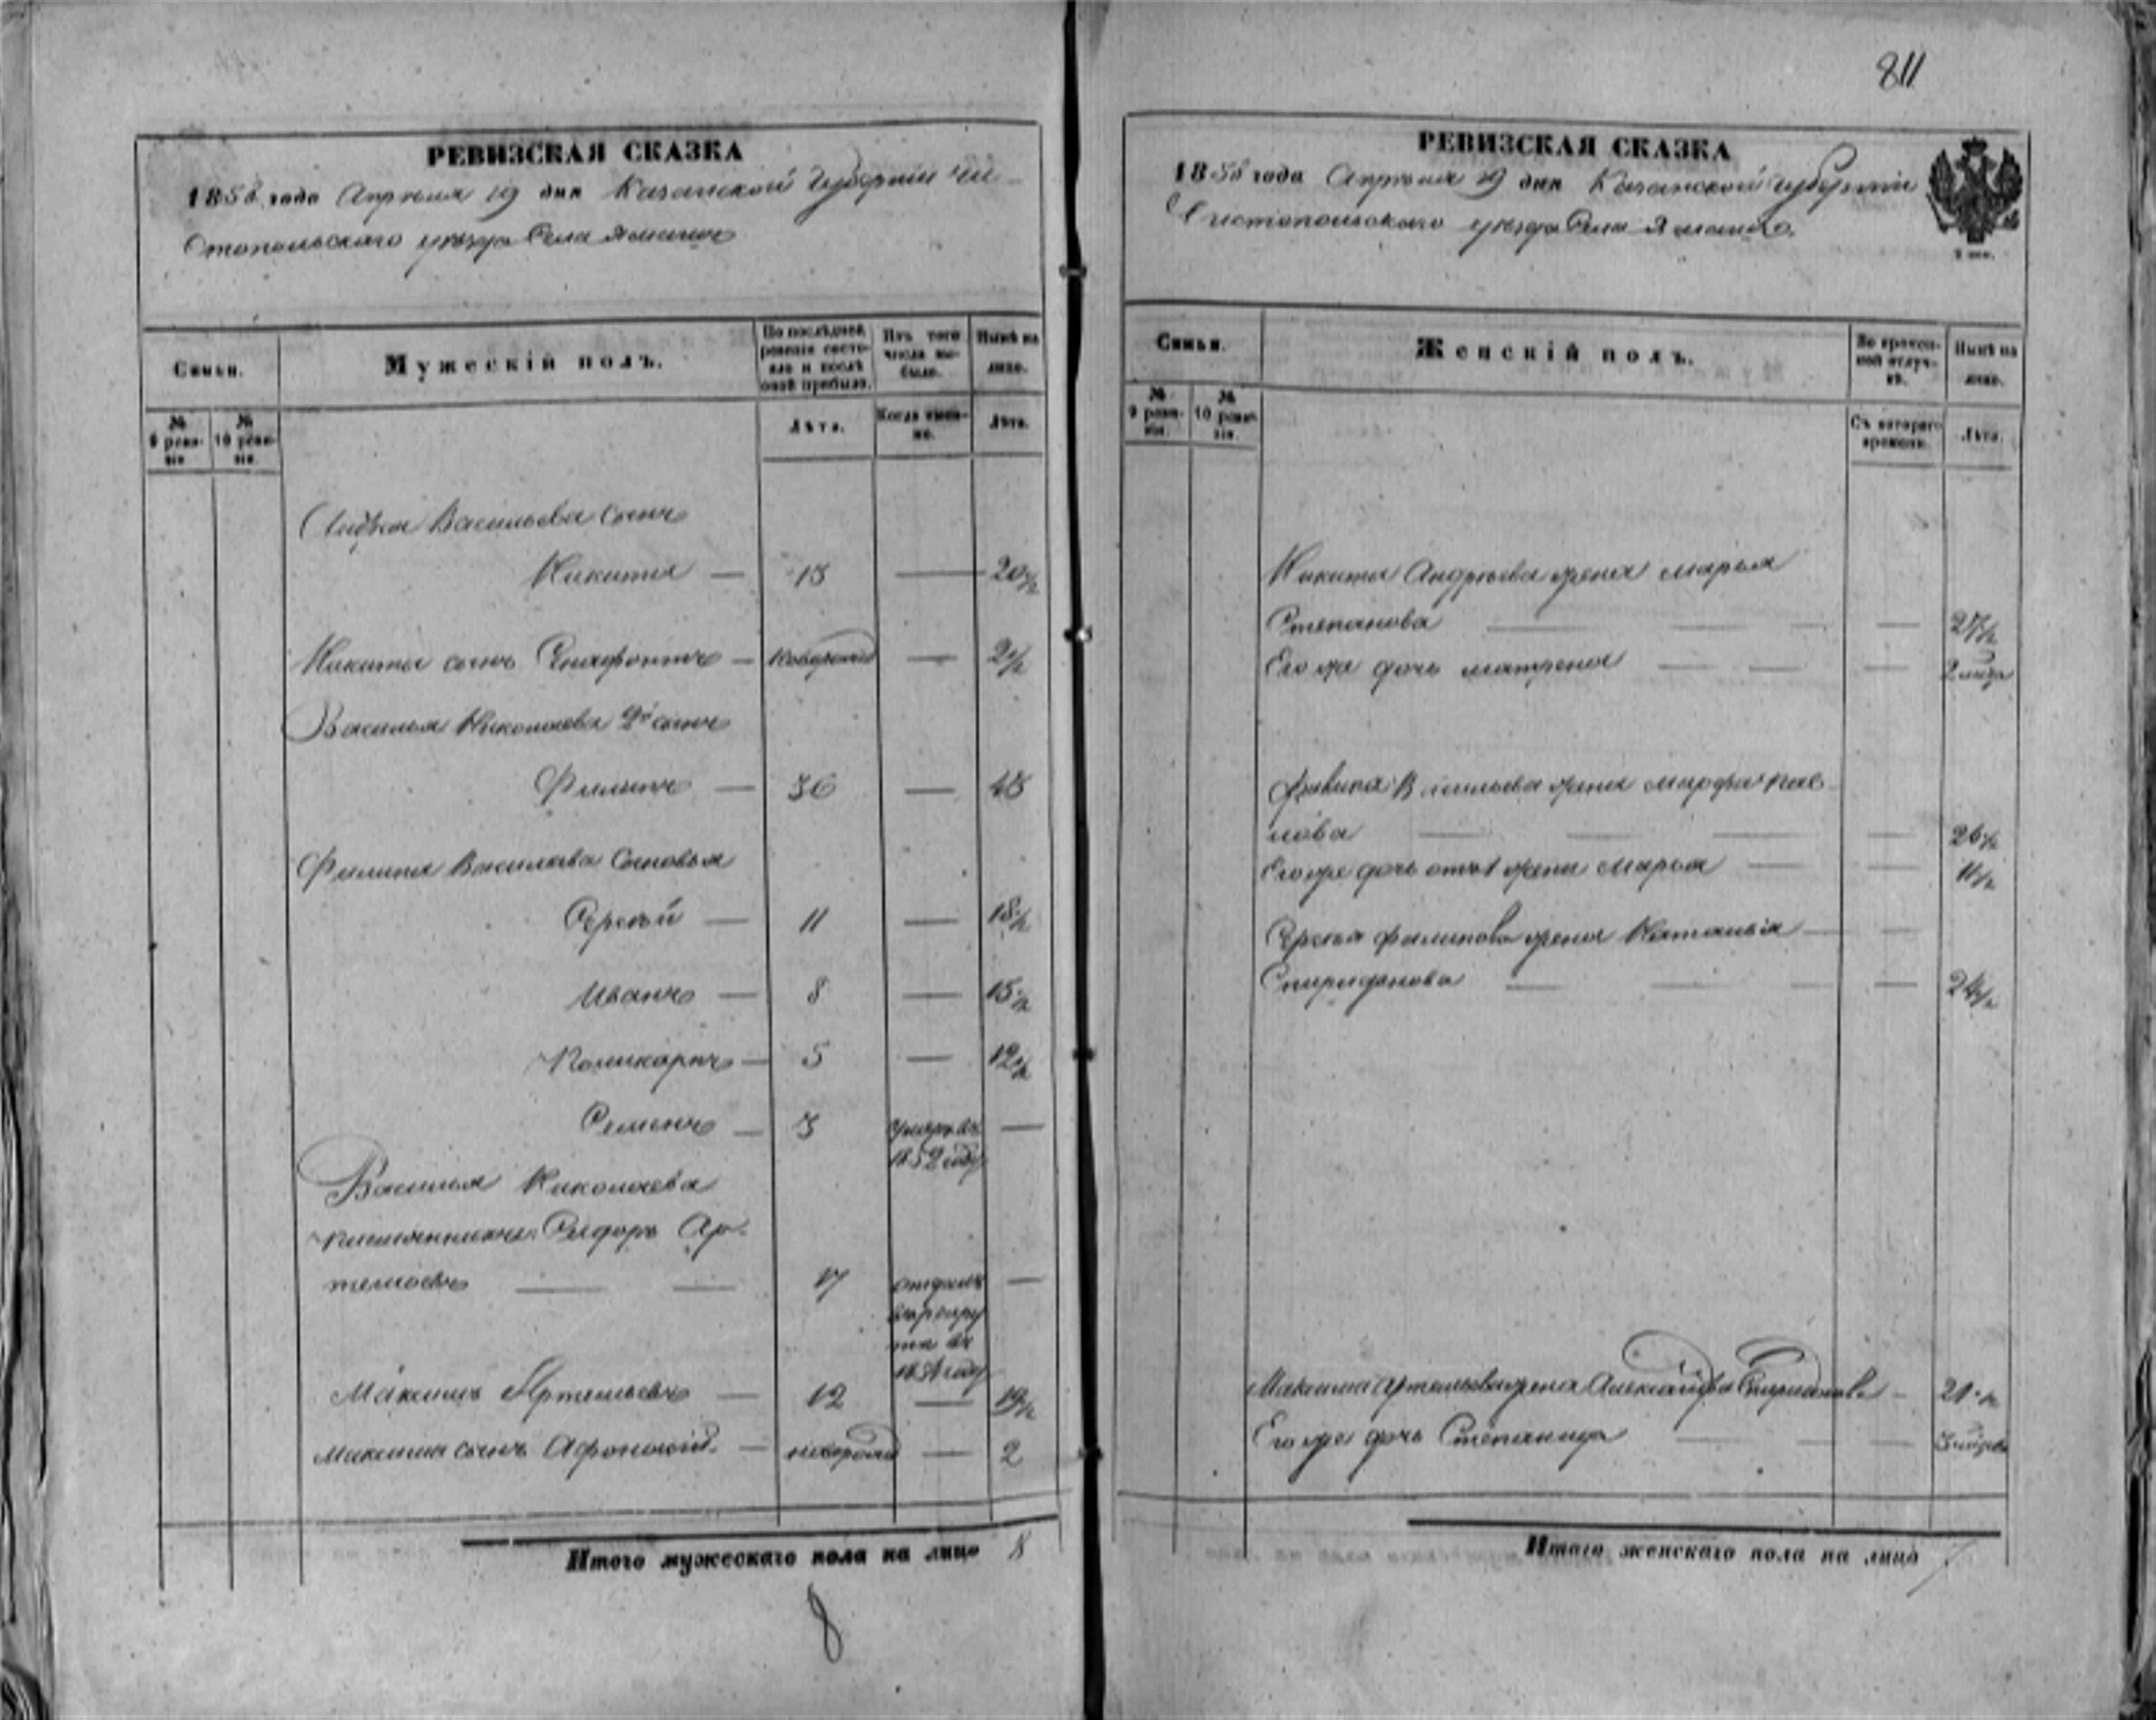 811
РЕВИЗСКАЯ СКАЗКА
1858 года Апреля 19 дня Казанской Губернии Чи-
стопольскаго уезда Села
Семьи.
Мужескій полъ.
По послѣдней ревизіи состояло и послѣ оной прибыло.
Изъ того числа выбыло.
Нынѣ на лицо.
№ 9 ревизіи
№ 10 ревизіи.
Лѣта.
Когда именно.
Лѣта.
Васильева сынъ
Никита — 13 — 20 1/2
Никиты сынъ — новорожд — 2 1/2
Василья Николаева 2й сынъ
Филипъ — 36 — 43
Филипа Васильева Сыновья
Сергей — 11 — 18 1/2
Иванъ — 8 — 15 1/2
Поликарпъ — 5 — 12 1/2
Семенъ — 3 умеръ въ —
1852 году
Василья Николаева
племянникъ Федоръ Ар-
темьевъ — — 17 отданъ —
въ рекру
ты въ
году
Максимъ Артемьевъ — 12 — 19 1/2
Максима сынъ Афонасій — новорожд — 2
Итого мужескаго пола на лицо 8
8
РЕВИЗСКАЯ СКАЗКА
1858 года Апреля 19 дня Казанской губернии
Чистопольскаго уезда Села
Семьи.
Женскій полъ.
Во временной отлучкѣ.
Нынѣ на лицо.
№ 9 ревизіи.
№ 10 ревизіи.
Съ котораго времени.
Лѣта.
Никиты Андреева жена Марья
Степанова — — — — 27 1/2
Его же дочь Матрена — — —
Филипа Васильева жена Марфа Пав-
лова — — — — 26 1/2
Его же дочь от 1 жены Марья — — 11 1/2
Сергея Филипова жена Наталья — —
Спиридонова — — — — 24 1/2
Максима Артемьева жена Александра Спиридонова — 21 1/2
Его же дочь Степанида — — —
Итого женскаго пола на лицо 7